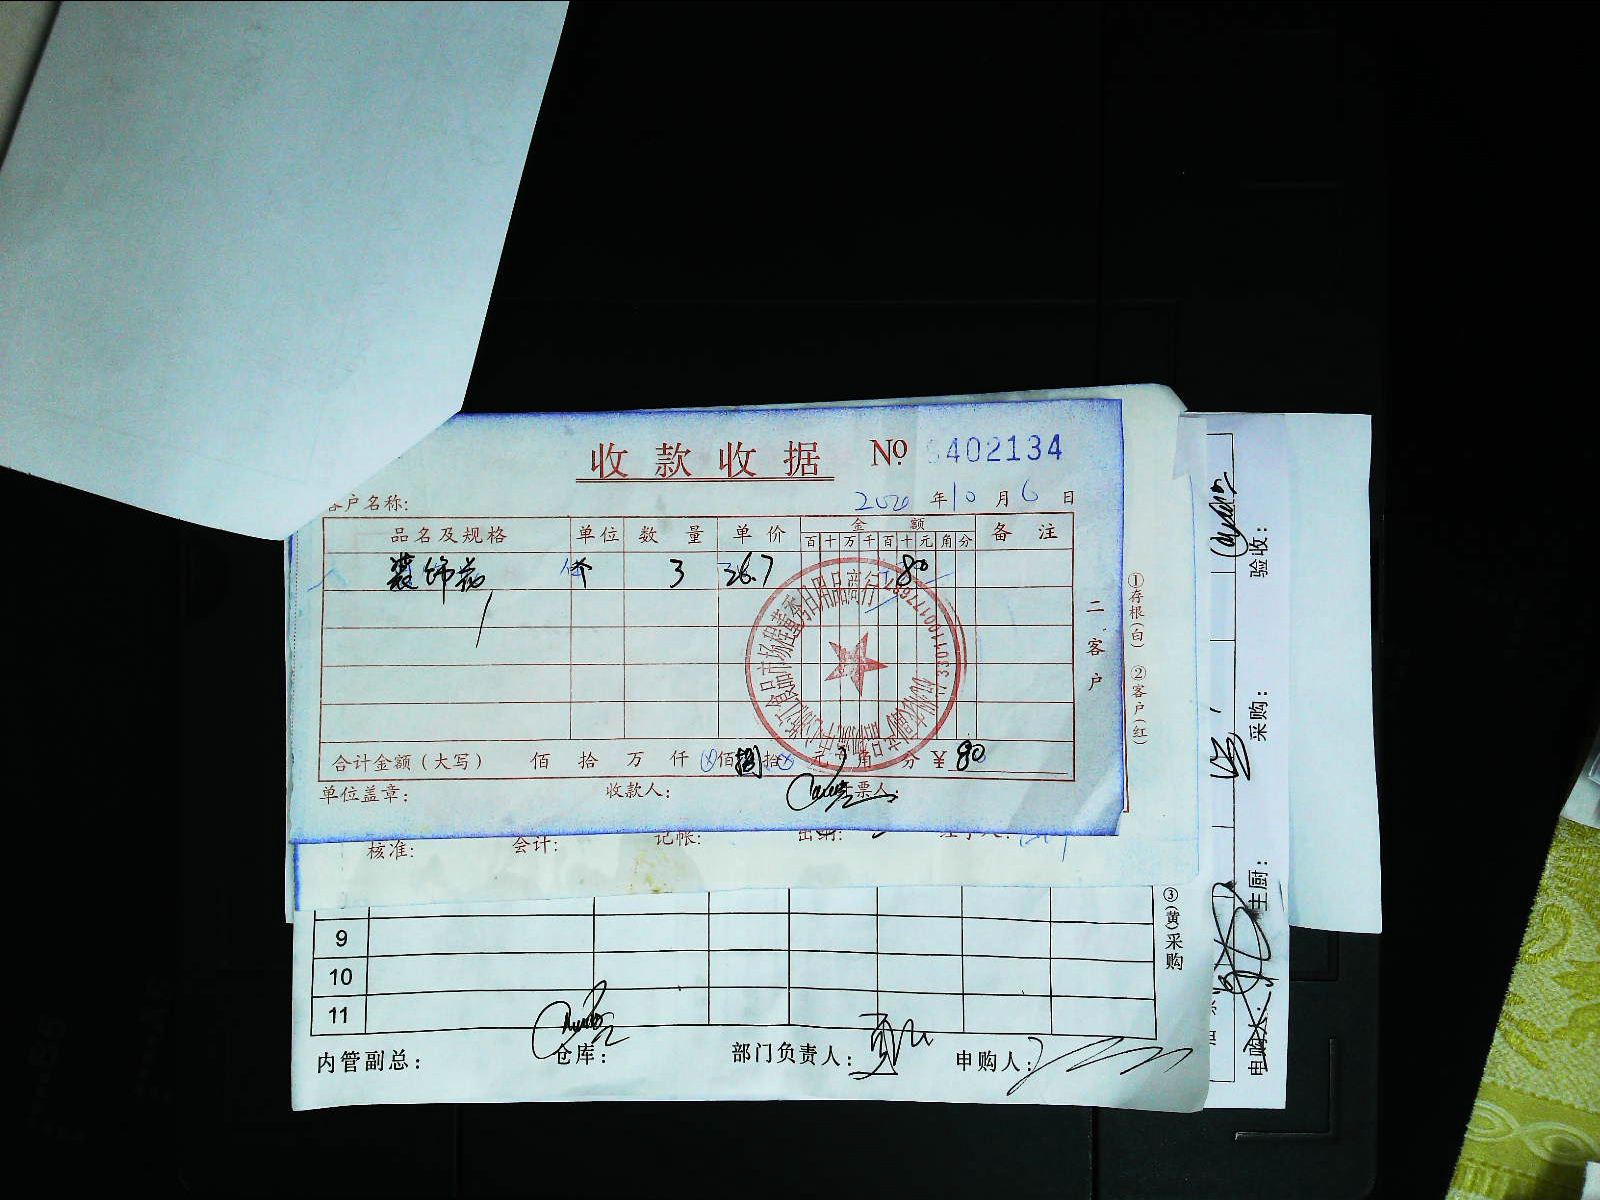 收款收据 No 402134
客户名称:
2020年10月6日
品名及规格 单位 数量 单价 金额 备注
百十万千百十元角分
装饰花 个 3 26.7 80
合计金额（大写） 佰 拾 万 仟 佰 捌拾 元 角 分 ¥ 80
单位盖章: 收款人: 开票人:
二客户
①存根(白) ②客户(红)
核准: 会计: 记帐: 出纳: 经手人:
9
10
11
内管副总: 仓库: 部门负责人: 申购人:
③(黄)采购
验收:
采购:
主厨:
申购人: